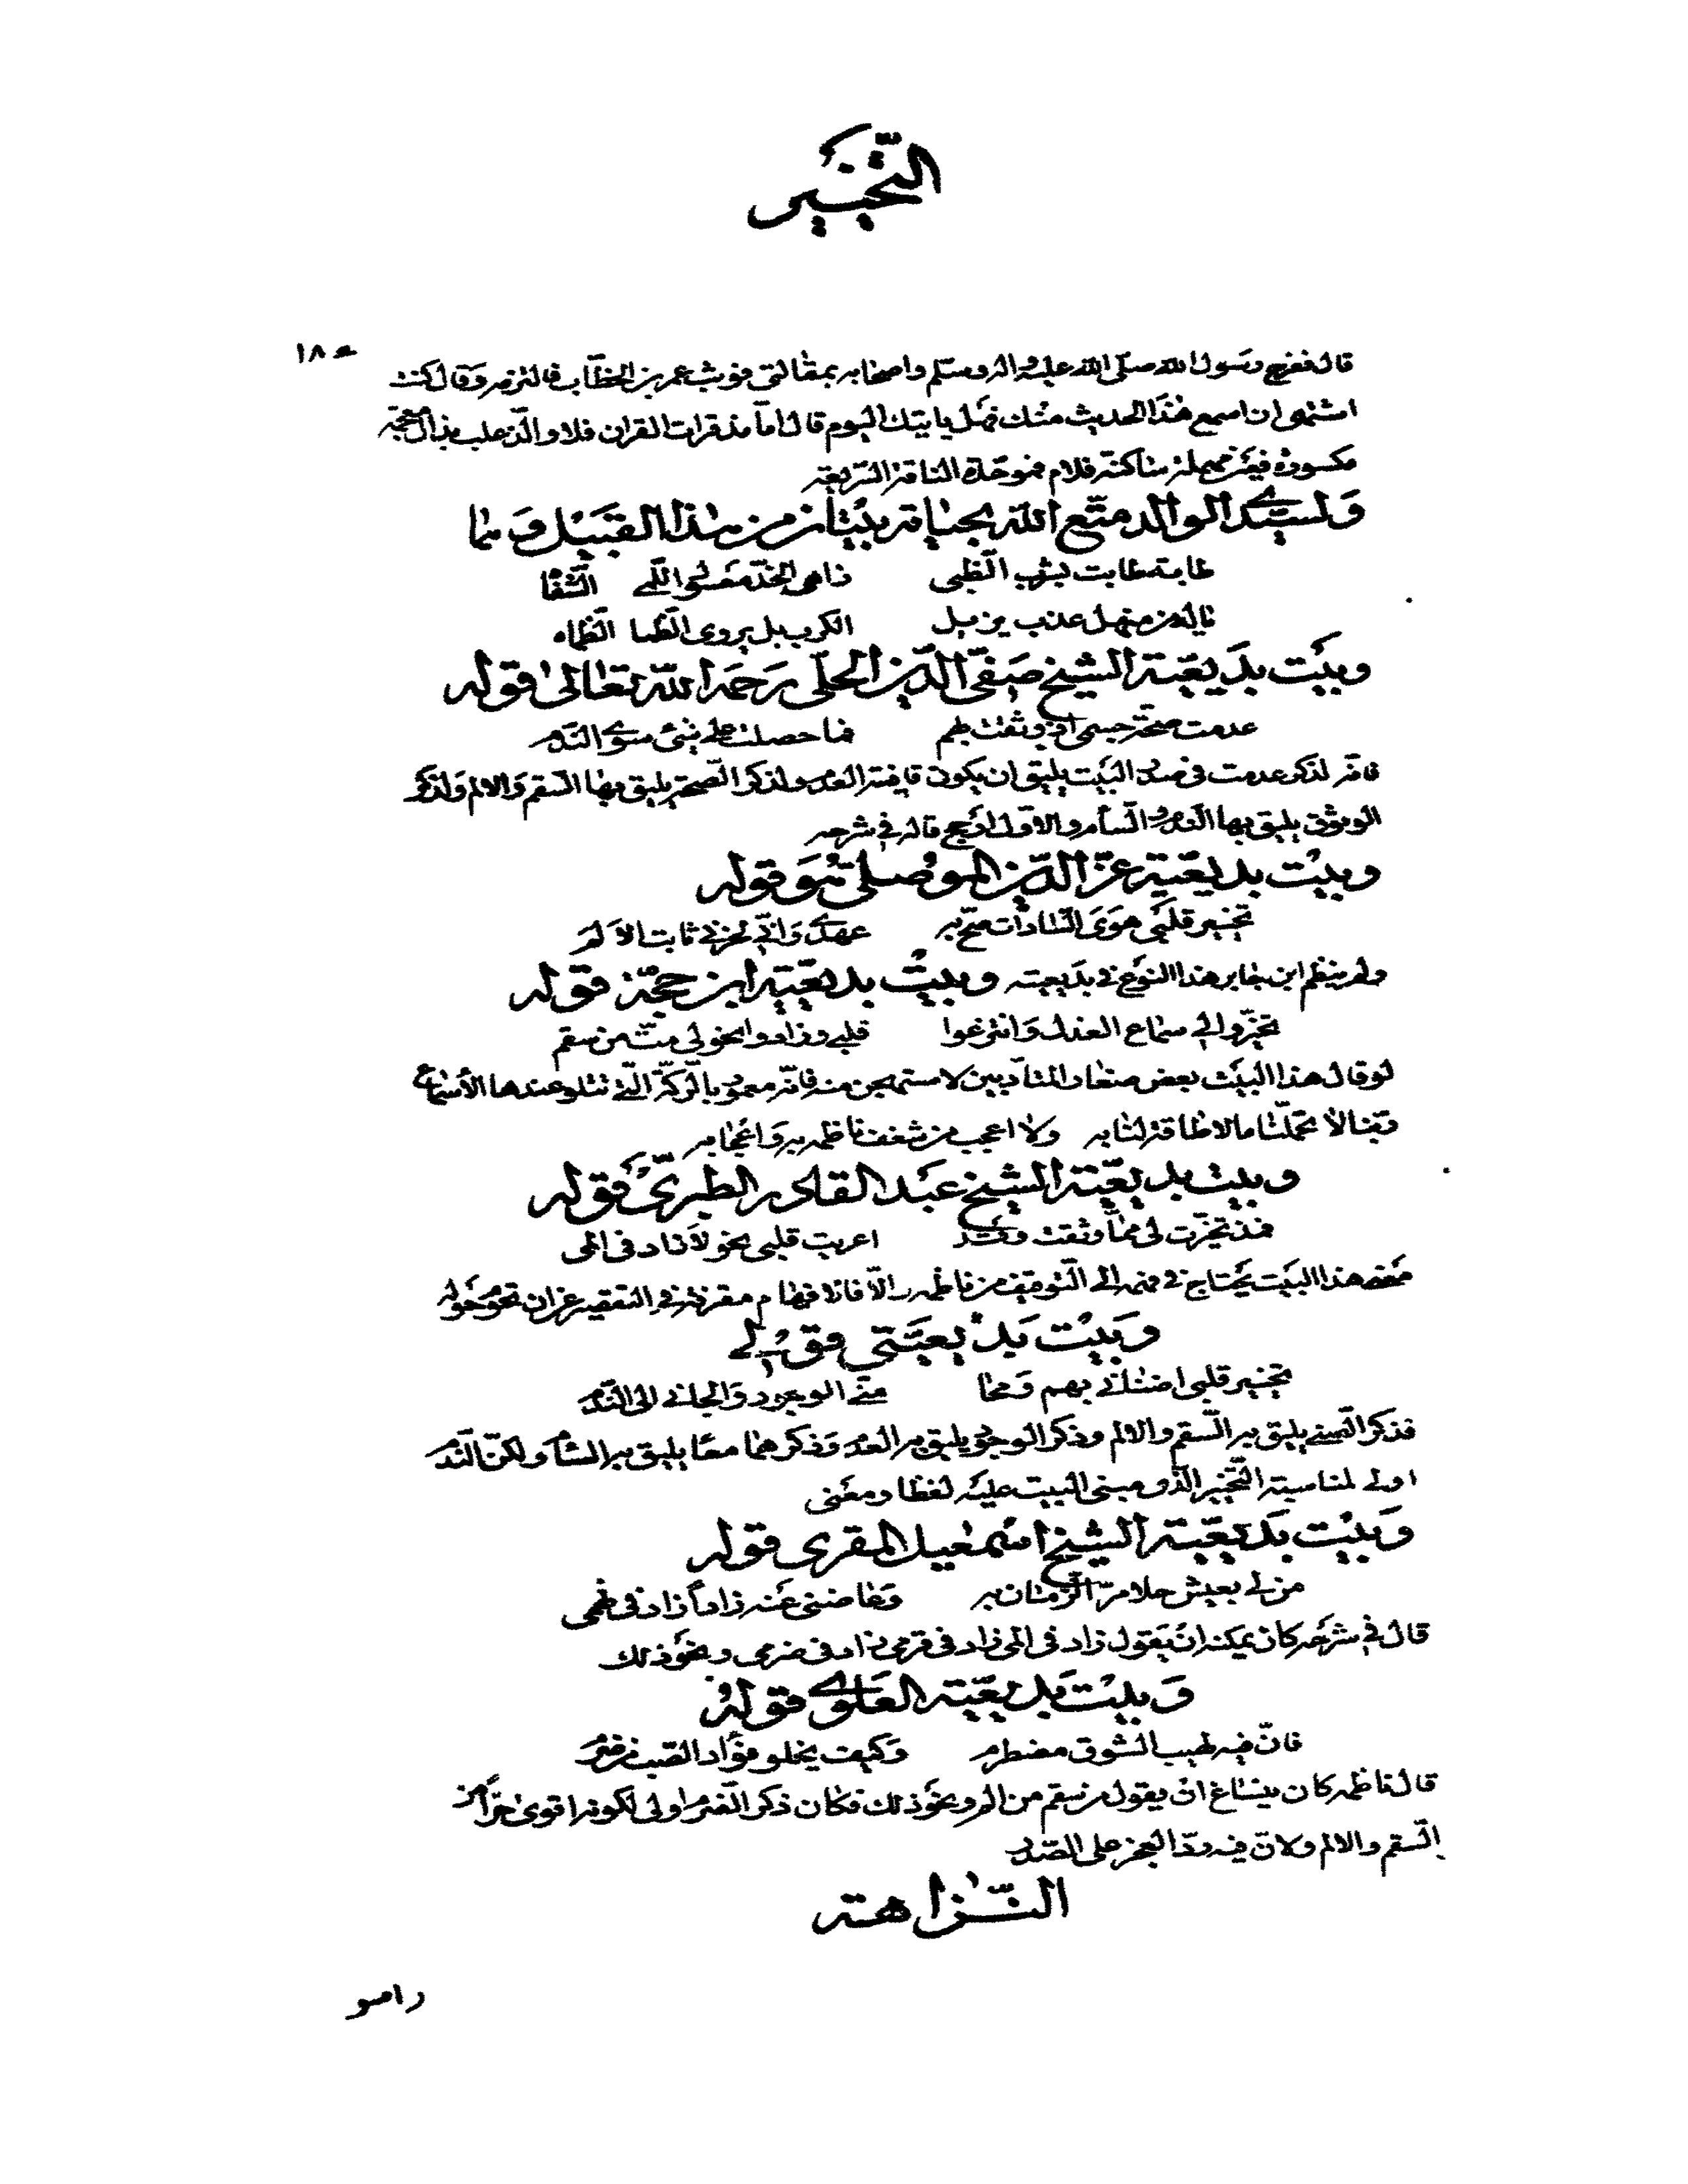 التخيير
١٨٥
قال ففرح رسول الله صلى الله عليه واله وسلم واصحابه بمقالتى فوثب عمر بن الخطاب فالتزمه وقال كنت
اشتهى ان اسمع هذا الحديث منك فهل ياتيك اليوم قال اما مذ قرات القران فلا والذعلب بذال معجمة
مكسورة فعين مهملة ساكنة فلام فموحدة الناقة السريعة
ولسيدى الوالد متع الله بحياته بيتان من هذا القبيل وهما
طابة طابت بترب الظبى زاهى الخد معسول اللمى الشفا
ياله من منهل عذب يزيل الكرب بل يروى الظما الظماه
وبيت بديعية الشيخ صفى الدين الحلى رحمه الله تعالى قوله
عدمت صحة جسمى اذ وثقت بهم فما حصلت على شئ سوى الندم
فانه لذكر عدمت فى صدر البيت يليق ان يكون قافيته العدم ولذكر الصحة يليق بها السقم والالم ولذكر
الوثوق يليق بها الندم والسأم والاول ارجح قاله فى شرحه
وبيت بديعية عز الدين الموصلى هو قوله
تخيير قلبى هوى السادات صح به عهدى وانى لحزنى ثابت الالم
ولم ينظم ابن جابر هذا النوع فى بديعيته وبيت بديعية ابن حجة قوله
تخيروا لى سماع العذل وانتزعوا قلبى وزادوا نحولى مت من سقم
لو قال هذا البيت بعض صغار المتأدبين لاستهجن منه فانه معمور بالركة التى تتلو عندها الأسماع
ربنا لا تحملنا ما لا طاقة لنا به ولا اعجب من شغف ناظمه به واعجابه
وبيت بديعية الشيخ عبد القادر الطبرى قوله
مذ تخيرت لى مما وثقت وقد اعربت قلبى نحولا زاد فى المى
معنى هذا البيت يحتاج فى فهمه الى التوقيف من ناظمه والا فالافهام مقرة فى التقصير عن ان تحوم حوله
وبيت بديعيتى قولى
تخيير قلبى اضنانى بهم ومحا منى الوجود والجانى الى الندم
فذكر الضنى يليق به السقم والالم وذكر الوجود يليق به العدم وذكرهما معا يليق به السأم ولكن الندم
اولى لمناسبة التخيير الذى مبنى البيت عليه لفظا ومعنى
وبيت بديعية الشيخ اسمعيل المقرى قوله
من لى بعيش حلا مر الزمان به وعاضنى عنه زادا زاد فى
قال فى شرحه كان يمكنه ان يقول زاد فى المى زاد فى قرمى زاد فى ضرمى ونحو ذلك
وبيت بديعية العلوى قوله
فان فيه لهيب الشوق مضطرم وكيف يخلو فؤاد الصب من ضرم
قال ناظمه كان يساغ ان يقول من سقم من الم ونحو ذلك فكان ذكر الضرم اولى لكونه اقوى حرا من
السقم والالم ولان فيه رد العجز على الصدر
النزاهة